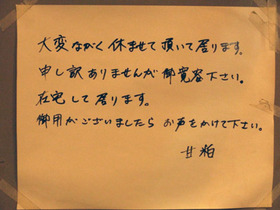 大変ながく休ませて頂いて居ります。
申し訳ありませんが御寛容下さい。
在宅して居ります。
御用がございましたらお声をかけて下さい。
甘粕